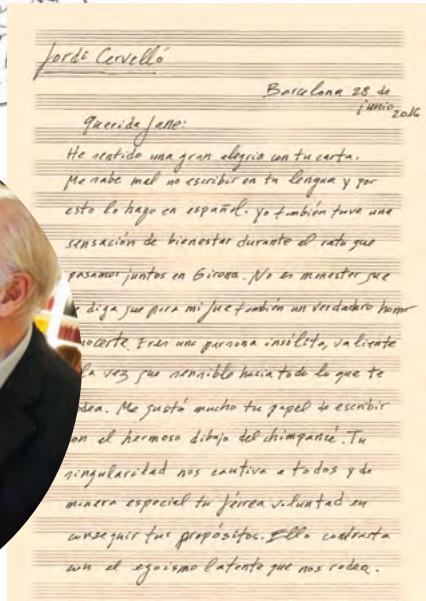 Jordi Cervelló
Barcelona 28 de
junio 2016
Querida Jane:
He sentido una gran alegría con tu carta.
Me sabe mal no escribir en tu lengua y por
esto lo hago en español. Yo también tuve una
sensación de bienestar durante el rato que
pasamos juntos en Girona. No es menester que
diga que para mi fue también un verdadero honor
nocerte. Eres una persona insólita, valiente
la vez que sensible hacia todo lo que te
odea. Me gustó mucho tu papel de escribir
on el hermoso dibujo del chimpancé. Tu
singularidad nos cautiva a todos y de
manera especial tu férrea voluntad en
conseguir tus propósitos. Ello contrasta
con el egoismo latente que nos rodea.